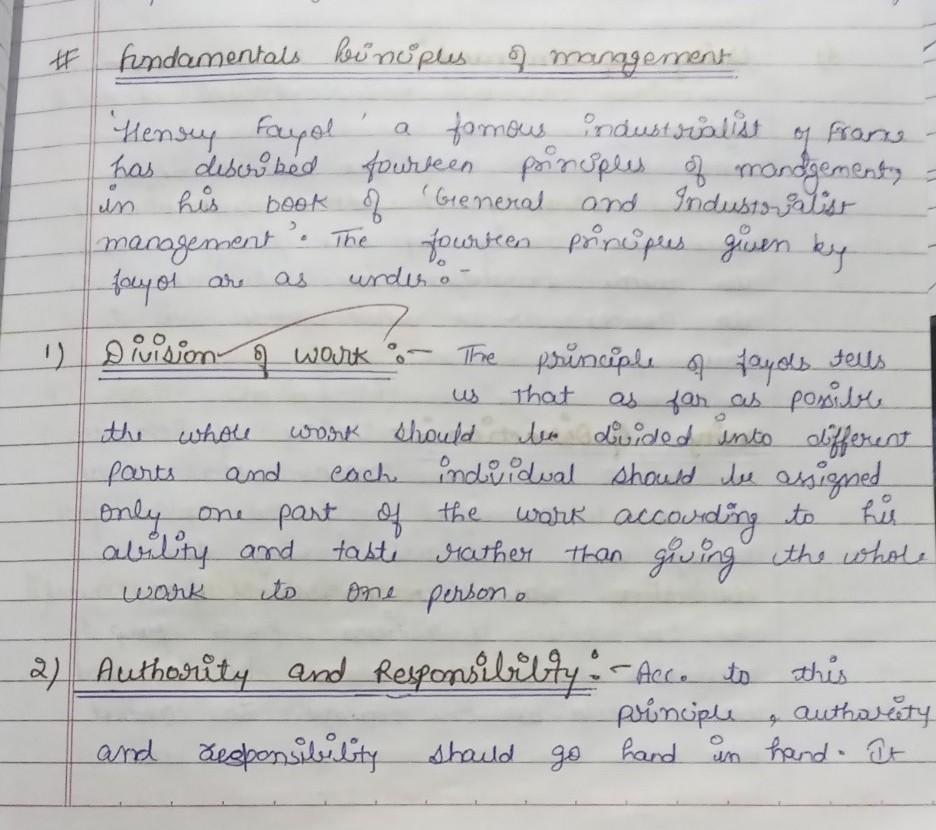 # Fundamentals Principles of management
'Henry Fayol' a famous industrialist of France
has described fourteen principles of management,
in his book of 'General and Industrialist
management'. The fourteen principles given by
fayol are as under:-
1) Division of work :- The principle of fayols tells
us that as far as possible
the whole work should be divided into different
parts and each individual should be assigned
only one part of the work according to his
ability and taste rather than giving the whole
work to one person.
2) Authority and Responsibility :- Acc. to this
principle, authority
and responsibility should go hand in hand. It